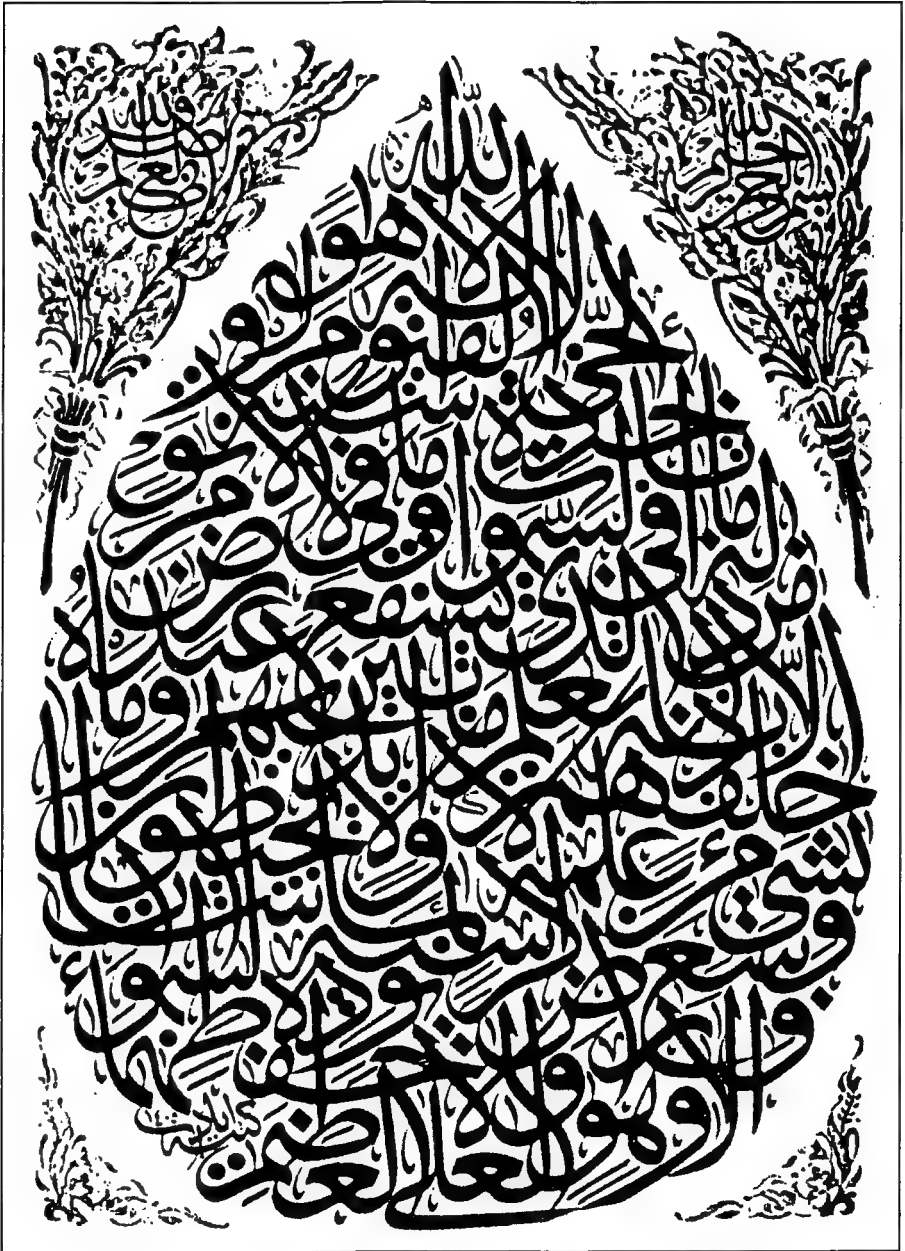 بسم الله الرحمن الرحيم
الله
لا إله إلا هو
الحي القيوم لا تأخذه سنة ولا نوم
له ما في السموات وما في الأرض
من ذا الذي يشفع عنده إلا بإذنه
يعلم ما بين أيديهم وما خلفهم
ولا يحيطون بشيء من علمه إلا بما شاء
وسع كرسيه السموات والأرض
ولا يؤوده حفظهما
وهو العلي العظيم
صدق الله العظيم